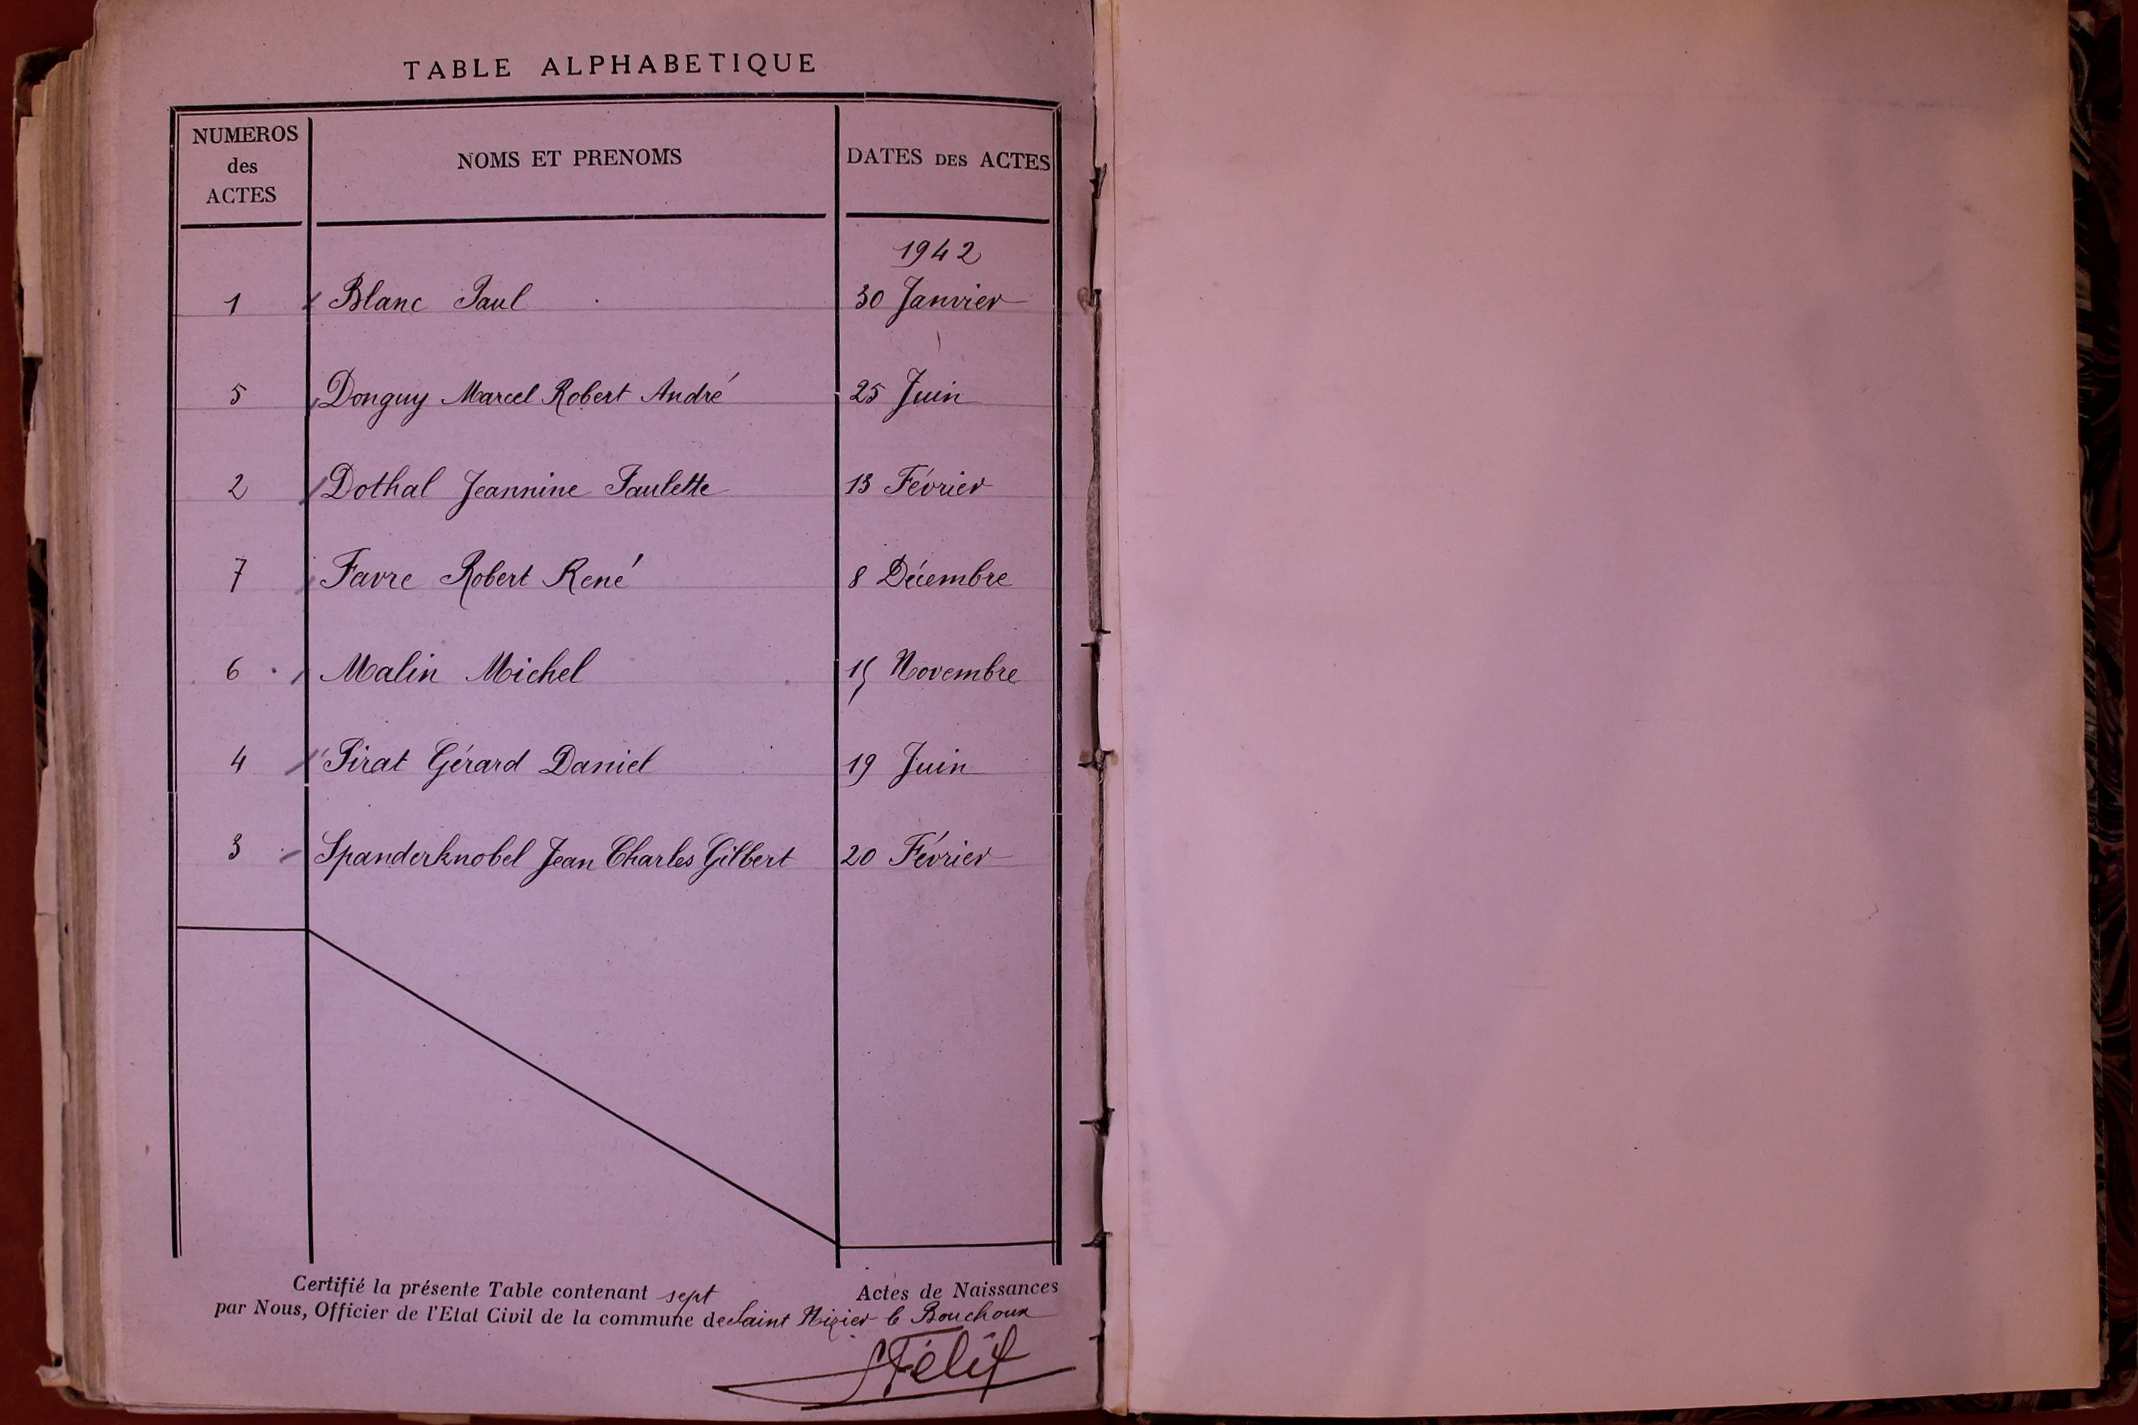 TABLE ALPHABETIQUE
NUMEROS des ACTES
NOMS ET PRENOMS
DATES DES ACTES
1942
1 Blanc Paul 30 Janvier
5 Donguy Marcel Robert André 25 Juin
2 Dothal Jeannine Paulette 13 Février
7 Favre Robert René 8 Décembre
6 Malin Michel 15 Novembre
4 Pirat Gérard Daniel 19 Juin
3 Spanderknobel Jean Charles Gilbert 20 Février
Certifié la présente Table contenant sept Actes de Naissances
par Nous, Officier de l'Etat Civil de la commune de Saint Nizier le Bouchoux
Félix